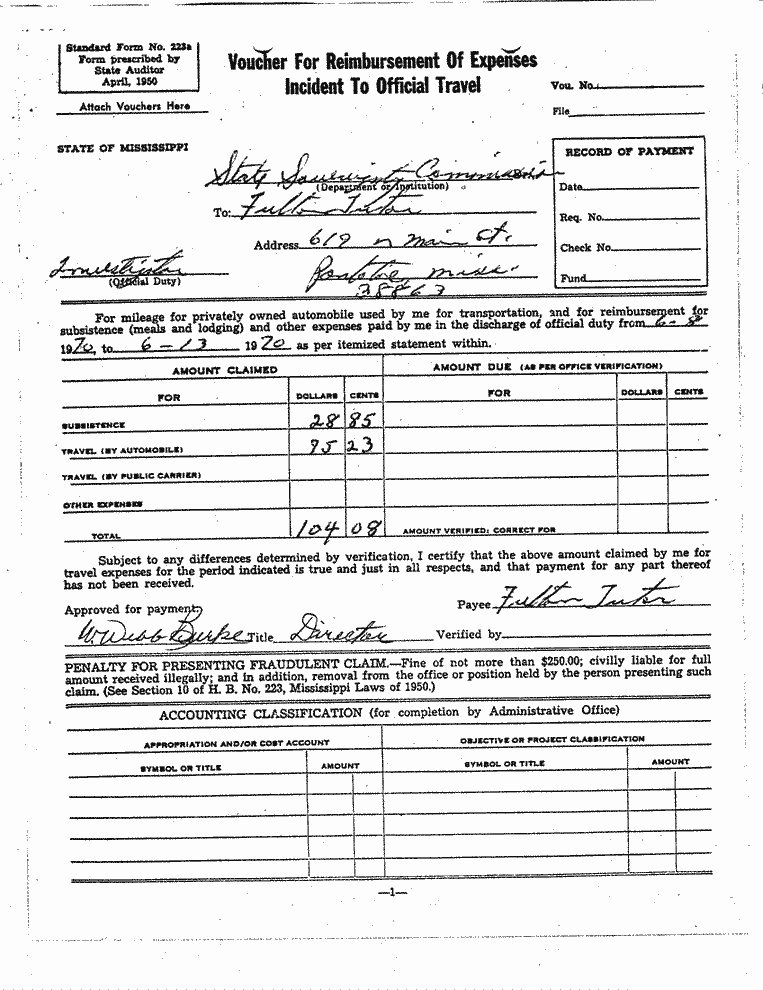 Standard Form No. 223a
Form prescribed by
State Auditor
April, 1950
Attach Vouchers Here
Voucher For Reimbursement Of Expenses
Incident To Official Travel
Vou. No.
File
STATE OF MISSISSIPPI
State Sovereignty Commission
(Department or Institution)
To: Fulton Tutor
Address 619 n main st.
Investigator
(Official Duty)
Pontotoc, miss.
38863
RECORD OF PAYMENT
Date
Req. No.
Check No.
Fund
For mileage for privately owned automobile used by me for transportation, and for reimbursement for
subsistence (meals and lodging) and other expenses paid by me in the discharge of official duty from 6-8
1970, to 6-13 1970 as per itemized statement within.
AMOUNT CLAIMED
AMOUNT DUE (AS PER OFFICE VERIFICATION)
FOR DOLLARS CENTS FOR DOLLARS CENTS
SUBSISTENCE 28 85
TRAVEL (BY AUTOMOBILE) 75 23
TRAVEL (BY PUBLIC CARRIER)
OTHER EXPENSES
TOTAL 104 08 AMOUNT VERIFIED; CORRECT FOR
Subject to any differences determined by verification, I certify that the above amount claimed by me for
travel expenses for the period indicated is true and just in all respects, and that payment for any part thereof
has not been received.
Approved for payment:
Payee Fulton Tutor
W. Webb Burke Title Director Verified by
PENALTY FOR PRESENTING FRAUDULENT CLAIM.—Fine of not more than $250.00; civilly liable for full
amount received illegally; and in addition, removal from the office or position held by the person presenting such
claim. (See Section 10 of H. B. No. 223, Mississippi Laws of 1950.)
ACCOUNTING CLASSIFICATION (for completion by Administrative Office)
APPROPRIATION AND/OR COST ACCOUNT OBJECTIVE OR PROJECT CLASSIFICATION
SYMBOL OR TITLE AMOUNT SYMBOL OR TITLE AMOUNT
—1—